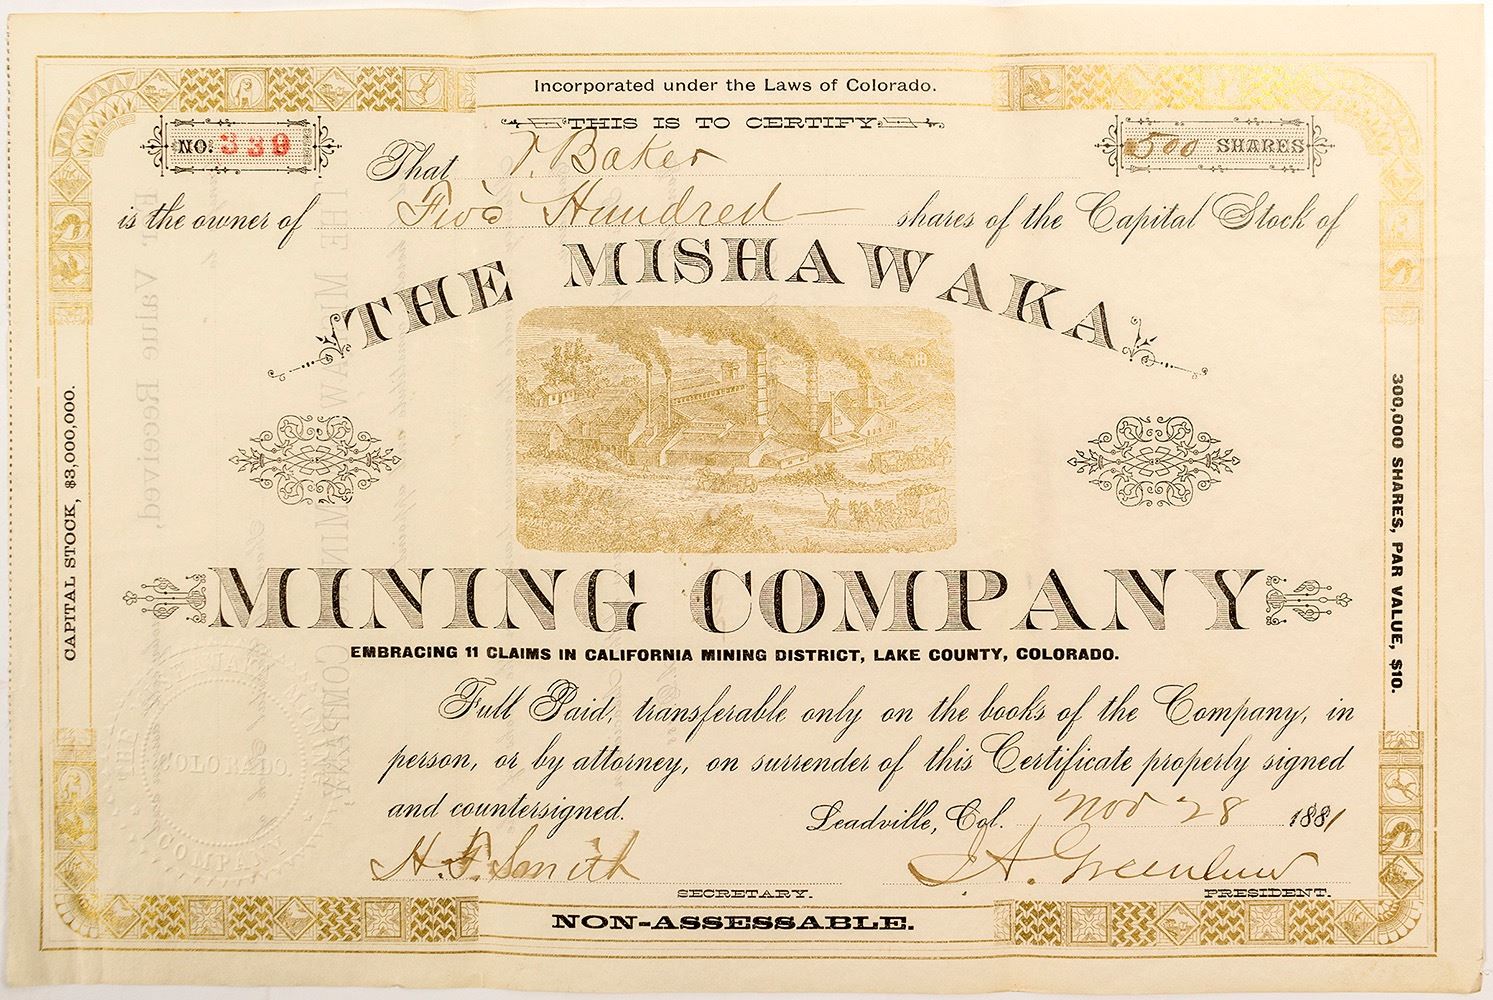 Incorporated under the Laws of Colorado.
THIS IS TO CERTIFY
NO. 339
500 SHARES
That V. Baker
is the owner of Five Hundred shares of the Capital Stock of
THE MISHAWAKA
MINING COMPANY
EMBRACING 11 CLAIMS IN CALIFORNIA MINING DISTRICT, LAKE COUNTY, COLORADO.
Full Paid, transferable only on the books of the Company, in
person, or by attorney, on surrender of this Certificate properly signed
and countersigned.
Leadville, Col. Nov 28 1881
H. F. Smith
SECRETARY.
A. Greenlow
PRESIDENT.
NON-ASSESSABLE.
CAPITAL STOCK, $3,000,000.
300,000 SHARES, PAR VALUE, $10.
THE MISHAWAKA MINING COMPANY
COLORADO.
For Value Received,